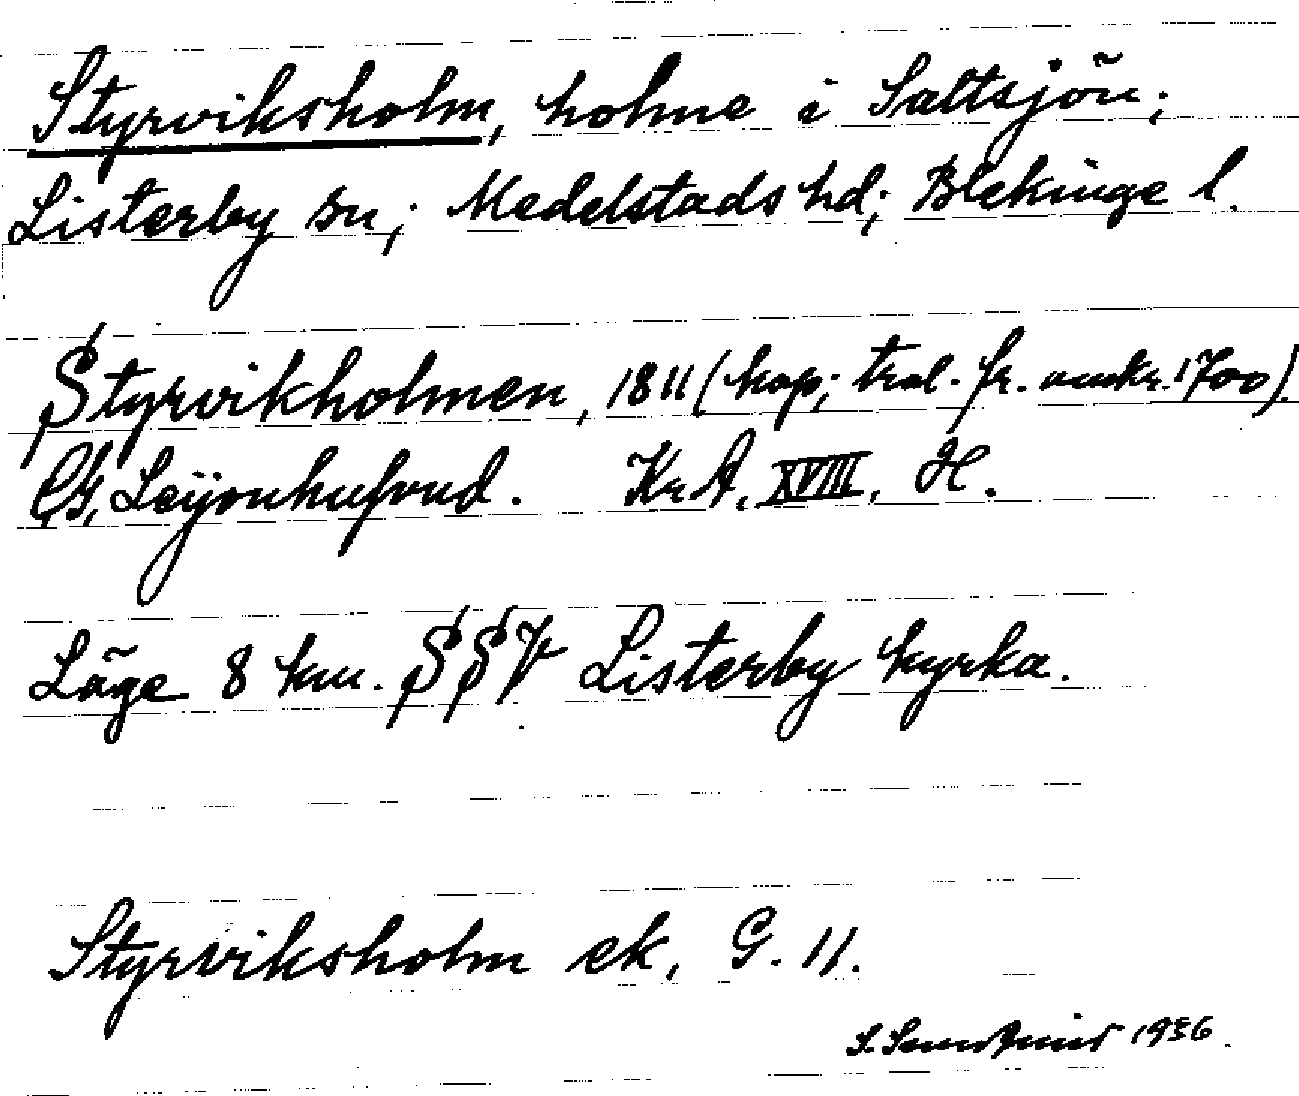 Styrviksholm, holme i Saltsjön;
Listerby sn; Medelstads hd; Blekinge l.
Styrvikholmen, 1811 (kop; tral. fr. omkr. 1700).
C.G. Leijonhufvud. KrA, XVIII, H.
Läge 8 km. SSV Listerby kyrka.
Styrviksholm ek, G. 11.
S. 1936.